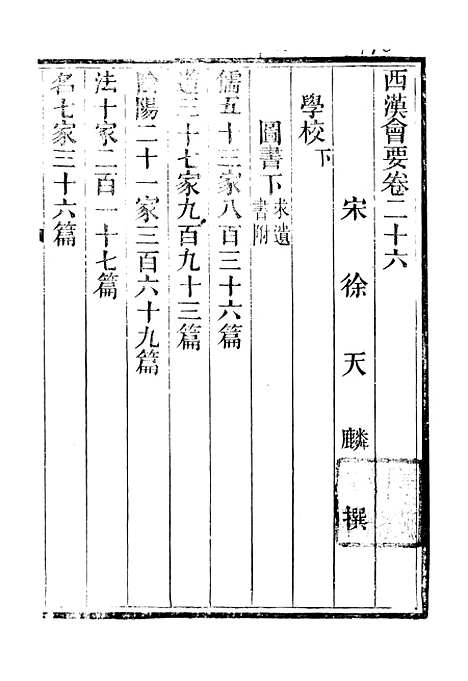 西漢會要卷二十六
宋徐天麟撰
學校下
圖書下求遺書附
儒五十三家八百三十六篇
道三十七家九百九十三篇
陰陽二十一家三百六十九篇
法十家二百一十七篇
名七家三十六篇